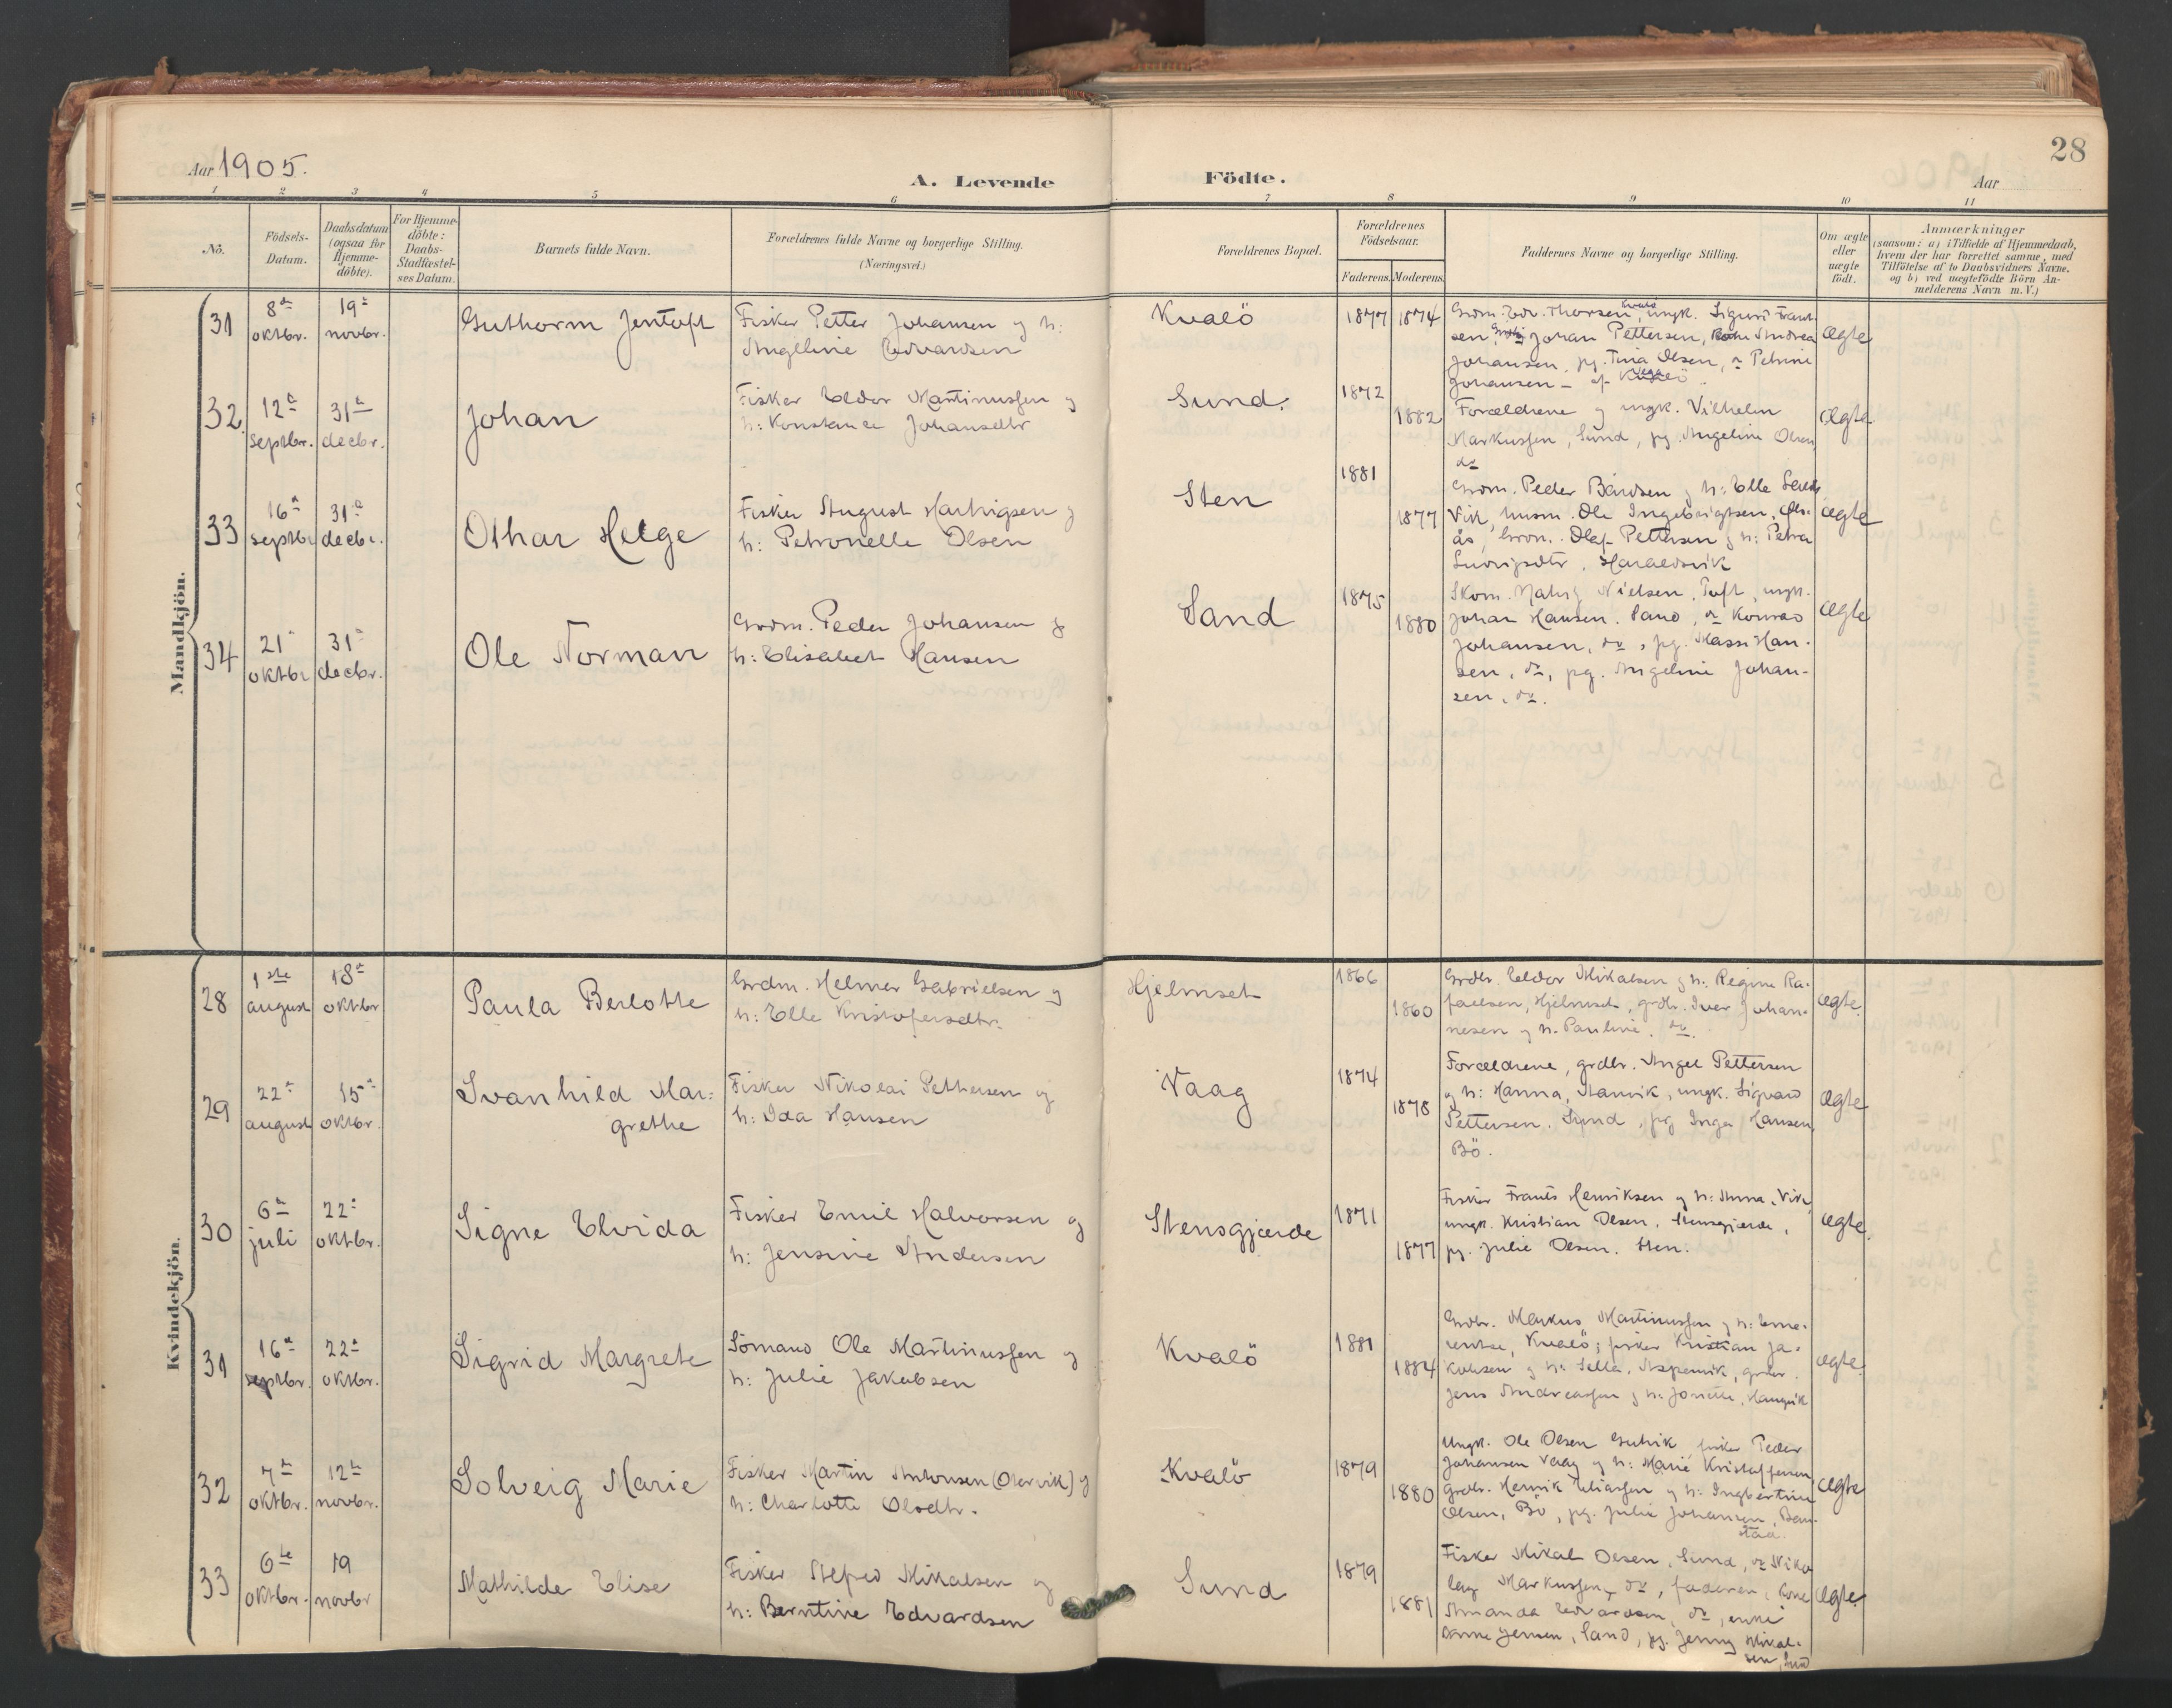 28
Aar 1905.
A. Levende
Födte.
Aar
1 2 3 4 5 6 7 8 9 10 11
No.
Födsels-
Datum.
Daabsdatum
(ogsaa for
Hjemme-
döbte).
For Hjemme-
döbte:
Daabs-
Stadfæstel-
ses Datum.
Barnets fulde Navn.
Forældrenes fulde Navne og borgerlige Stilling.
(Næringsvei.)
Forældrenes Bopæl.
Forældrenes
Födselsaar.
Faderens. Moderens.
Faddernes Navne og borgerlige Stilling.
Om ægte
eller
uægte
födt.
Anmærkninger
(saasom: a) i Tilfælde af Hjemmedaab,
hvem der har forrettet samme, med
Tilföielse af to Daabsvidners Navne,
og b) ved uægtefödte Börn An-
melderens Navn m. V.)
Mandkjön.
31
8de
oktbr.
19de
novbr.
Guthorm Jentoft
Fisker Petter Johansen og h:
Angelline Edvardsen
Kvalö
1877 1874
Grdm. Edv. Thorsen, ungk. Sigurd Frant-
sen, Johan Pettersen, Andrea
Johansen, pg. Tina Olsen, Petrine
Johansen - af
ægte
32.
12te
septbr.
31te
decbr.
Johan
Fisker Eldor Martinussen og
h: Konstance Johansdtr
Sund.
1872
1882
Forældrene og ungk. Vilhelm
Markussen, Sund, pg. Angeline Olsen,
do
ægte
33
16de
septbr
31te
decbr.
Othar Helge
Fisker August Hartvigsen og
h: Petronelle Olsen
Sten
1881
1877
Grdm. Peder Bårdsen og h: Elle
Vik, husm. Ole Ingebrigtsen,
ås, Grdm. Olaf Pettersen og h: Petra
Ludvigsdtr, Haraldsvik
ægte
34
21
oktbr
31te
decbr.
Ole Norman
Grdm. Peder Johansen og
h: Elisabet Hansen
Sand
1875
1880
Skom. Nielsen, Toft, ungk.
Johan Hansen, Sand, Konrad
Johansen, do, pg. Massi Han-
sen, do, pg. Angeline Johan-
sen, do.
ægte
Kvindekjön.
28
1ste
august
18de
oktbr
Paula Berlotte
Grdm. Helmer Gabrielsen og
h: Elle Kristofersdtr.
Hjelmset
1866
1860
Grdbr. Eldor Mikalsen og h: Regine Ra-
faelsen, Hjelmset, grdbr. Iver Johan-
nesen og h. Pauline, do.
ægte.
29
22de
august
15de
oktbr.
Svanhild Mar-
grethe
Fisker Nikolai Pettersen og
h: Ida Hansen
Vaag
1874
1878
Forældrene, grdbr. Angel Pettersen
og h: Hanna, ungk. Sigvard
Pettersen, Sund, pg Inga Hansen,
Bö.
ægte
30
6te
juli
22de
oktbr.
Signe Elvida
Fisker Emil Halvorsen og
h: Jensine Andersen
Stensgjærde
1871
1877
Fisker Frants Henriksen og h: Anna, Vik,
ungk. Kristian Olsen, Stensgjærde,
pg. Julie Olsen, Sten.
ægte.
31
16de
septbr.
22de
oktbr.
Sigrid Margrete
Sömand Ole Martinussen og
h: Julie Jakobsen
Kvalö
1881
1884
Grdbr. Markus Martinussen og h: Eme-
rentse, Kvalö; fisker Kristian Ja-
kobsen og h: Sella, grdbr.
Jens Andreassen og h: Jonette,
ægte.
32
7de
oktbr.
12te
novbr.
Solveig Marie
Fisker Martin Antonsen (Olervik) og
h: Charlotte Olsdtr.
Kvalö
1879
1880
Ungk. Ole Olsen Gutvik, fisker Peder
Johansen Vaag og h: Marie Kristoffersen,
grdbr. Henrik Eliassen og h: Ingbertine
Olsen, Bö, pg. Julie Johansen, Ban-
stad.
ægte
33
6te
oktbr.
19
novbr
Mathilde Elise
Fisker Alfred Mikalsen og
h: Berntine Edvardsen
Sund
1879
1881
Fisker Mikal Olsen, Sund, do Niko-
lay Markussen, do, faderen, kone
Amanda Edvardsen, do, enke
Anne Jensen, Sand, pg. Jenny Mikal-
sen, Sund
ægte.